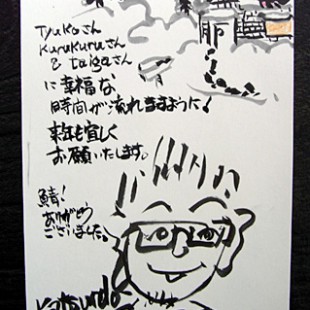 Tyukoさん
Kurukuruさん
& taigaさん
に幸福な
時間が流れますように!
来年も宜しく
お願いいたします。
鯖!
ありがとう
ございました。